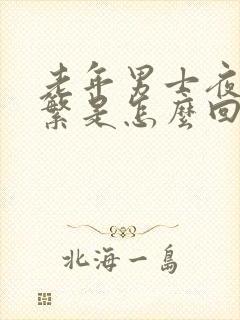 老年男士夜
繁是怎麼回
北海一島